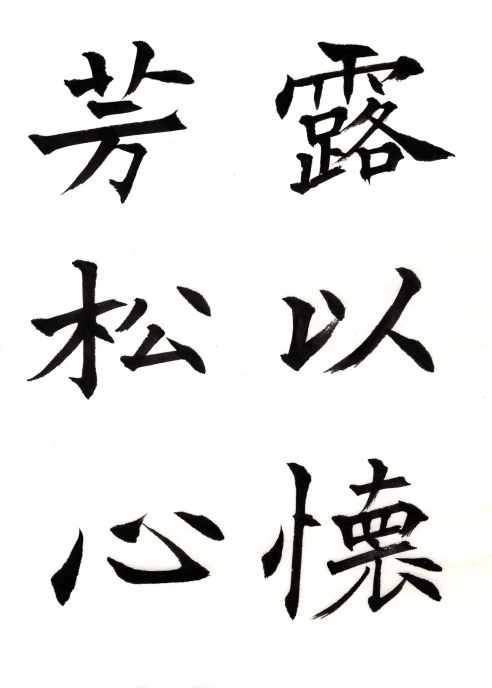 露以懐
芳松心